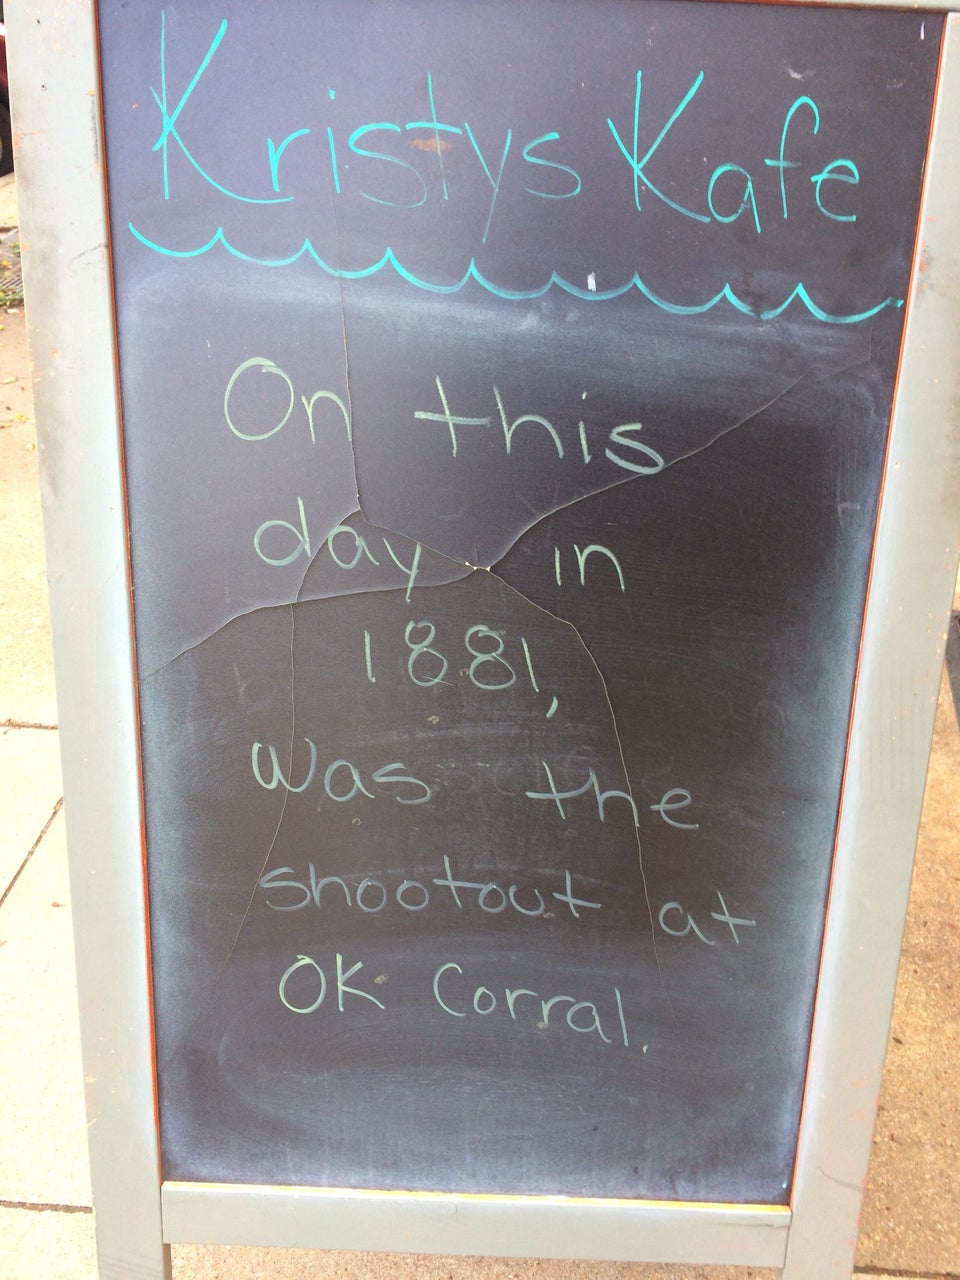 Kristys Kafe
On this
day in
1881,
was the
shootout at
OK Corral.